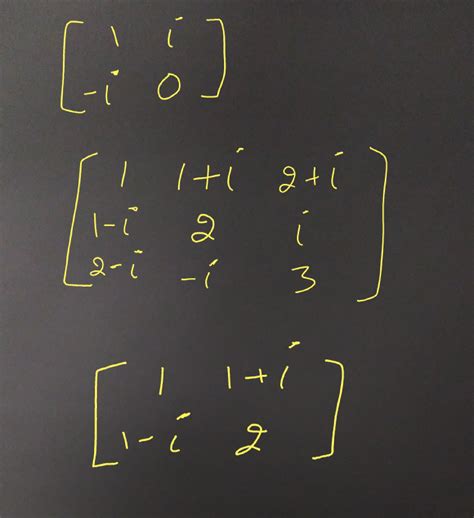 1 i
-i 0
1 1+i 2+i
1-i 2 i
2-i -i 3
1 1+i
1-i 2